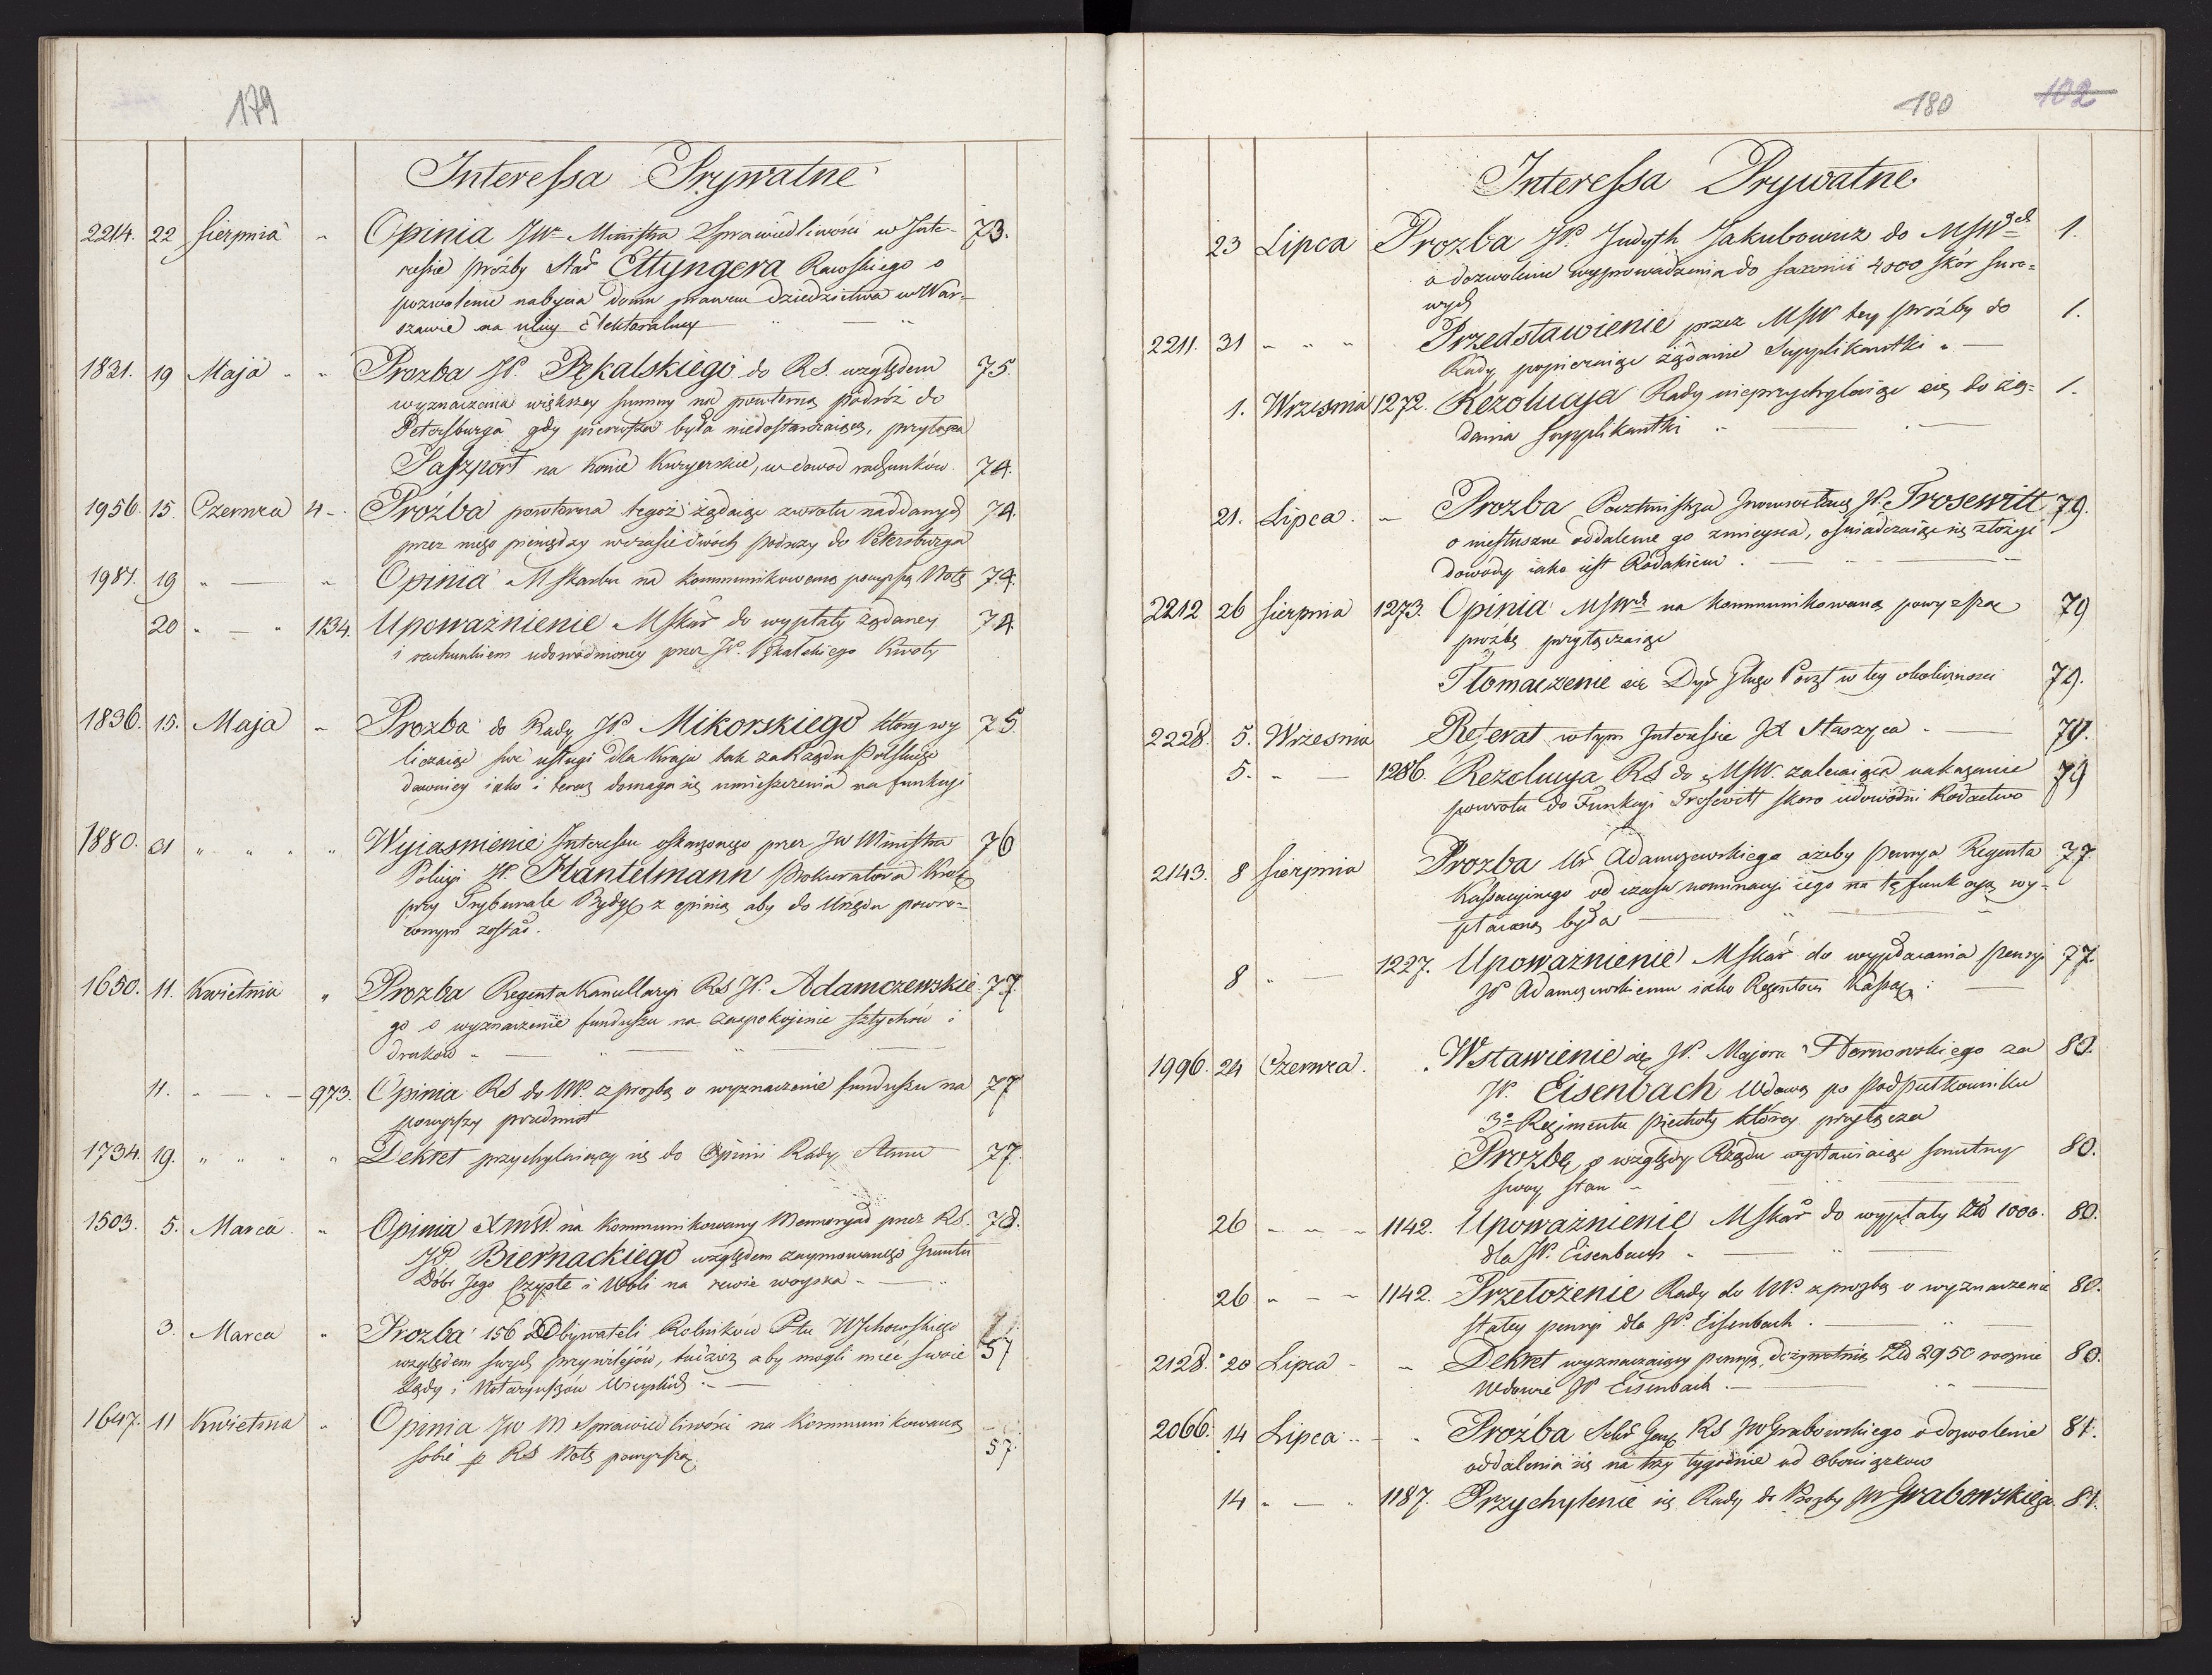 179
Interessa Prywatne
2214. 22 Sierpnia " Opinia JW Ministra Sprawiedliwości w Inte- 73.
ressie proźby Star Ettyngera Rawskiego o
pozwolenie nabycia domu prawem dziedzictwa w War-
szawie na ulicy Elektoralney
1831. 19 Maja " " Prozba JP. Pękalskiego do RS. względem 75.
wyznaczenia większey summy na powtorną podróż do
Petersburga gdy pierwsza była niedostarczaiącą, przyłącza
Paszport na konie Kuryerskie, w dowod rachunków. 74.
1956. 15. Czerwca 4 - Proźba powtorna tegoż żądaiąc zwrotu naddanych 74.
przez niego pieniędzy w czasie dwóch podrozy do Petersburga
1981. 19 " — " Opinia M Skarbu na kommunikowaną powyszą Notę 74.
20 " — " 1134. Upoważnienie MSkar do wypłaty żądaney 74.
i rachunkiem udowodnioney przez JP. Pękalskiego Kwoty
1836. 15. Maja " Prozba do Rady JP. Mikorskiego który wy 75.
liczaiąc swe usługi dla Kraju tak za Rządu Polskiego
dawniey iako i teraz domaga się umieszczenia na funkcyi
1880. 21 " " " " Wyiasnienie Interessu oskarzonego przez JW Ministra 76
Policyi JP. Hantelmann Prokuratora Krolo
przy Trybunale Bydgo z opinią aby do Urzędu powro-
conym został.
1650. 11. Kwietnia " Prozba Regenta Kancellaryi RS JP. Adamczewskie 77.
go o wyznaczenie funduszu na zaspokojenie sztychow i
druków " — " — " —
11. " — " — 973. Opinia RS do NP. z prozbą o wyznaczenie funduszu na 77
powyższy przedmiot
1734. 19. " " " " Dekret przychylaiący się do Opinii Rady Stanu 77.
1503. 5. Marca " Opinia MSW na kommunikowany Memoryał przez RS. 78.
JP. Biernackiego względem zaymowanego Gruntu
Dóbr Jego Czyste i Woli na rewie woyska "
3. Marca " Prozba 156 Obywateli Rolników Ptu Wschowskiego
względem swych przywilejów, tudzież aby mogli mieć swoie 57
Sądy i Notaryuszów Wieyskich —
1647. 11 Kwietnia " Opinia JW M Sprawiedliwości na kommunikowaną
sobie p RS Notę powyszą. 57.
180 102
Interessa Prywatne
23 Lipca Prozba JP. Judyth Jakubowicz do MSW 1.
o dozwolenie wyprowadzenia do Saxonii 4000 skór suro=
wych
2211. 31 " " " Przedstawienie przez MSW tey proźby do 1.
Rady popieraiąc żądanie Supplikantki " —
1. Wrzesnia 1272. Rezolucya Rady nieprzychylaiąc się do żą- 1.
dania supplikantki
21. Lipca. — Prozba Pocztmistrza Jnowrocławs JP. Trosewitt 79.
o niesłuszne oddalenie go z mieysca, oświadczaiąc się złożyć
dowody iako iest Rodakiem.
2212 26 Sierpnia 1273. Opinia MSW na kommunikowaną powyzszą 79
proźbę przyłączaiąc
Tłomaczenie się Dyr Głngo Poczt w tey okoliczności 79.
2228. 5. Wrzesnia Referat w tym Interessie Xd Staszyca. — 79.
5. " — 1286. Rezolucya RS do MSW. zalecaiąca nakazanie 79
powrotu do Funkcyi Trosewitt skoro udowodni Rodactwo
2143. 8 Sierpnia Prozba Ur Adamczewskiego ażeby pensya Regenta 77
Kassacyinego od czasu nominacyi iego na tę funkcyą wy-
płaconą była
8 " — 1227. Upoważnienie MSkar do wypłacania pensyi 77.
JP Adamczewskiemu iako Regentowi Kassac
1996. 24 Czerwca. Wstawienie się JP. Majora Hornowskiego za 80.
JP. Eisenbach Wdową po Podpułkowniku
3º Regimentu piechoty którey przyłącza
Prozbę o względy Rządu wystawiaiąc smutny 80.
swoy stan "
26 " — " 1142. Upoważnienie MSkar do wypłaty Zło 1000. 80.
dla JP. Eisenbach
26 " — " 1142. Przełożenie Rady do NP z prozbą o wyznaczenie 80.
stałey pensyi dla JP. Eisenbach.
2128. 20 Lipca - " Dekret wyznaczaiący pensyą dożywotnią Złł 2950 rocznie 80.
Wdowie JP Eisenbach. —
2066. 14 Lipca - - " Proźba Sekr Gen RS JW Grabowskiego o dozwolenie 81.
oddalenia się na trzy tygodnie od Obowiązkow
14 " — " 1187. Przychylenie się Rady do Prozby JW Grabowskiego 81.